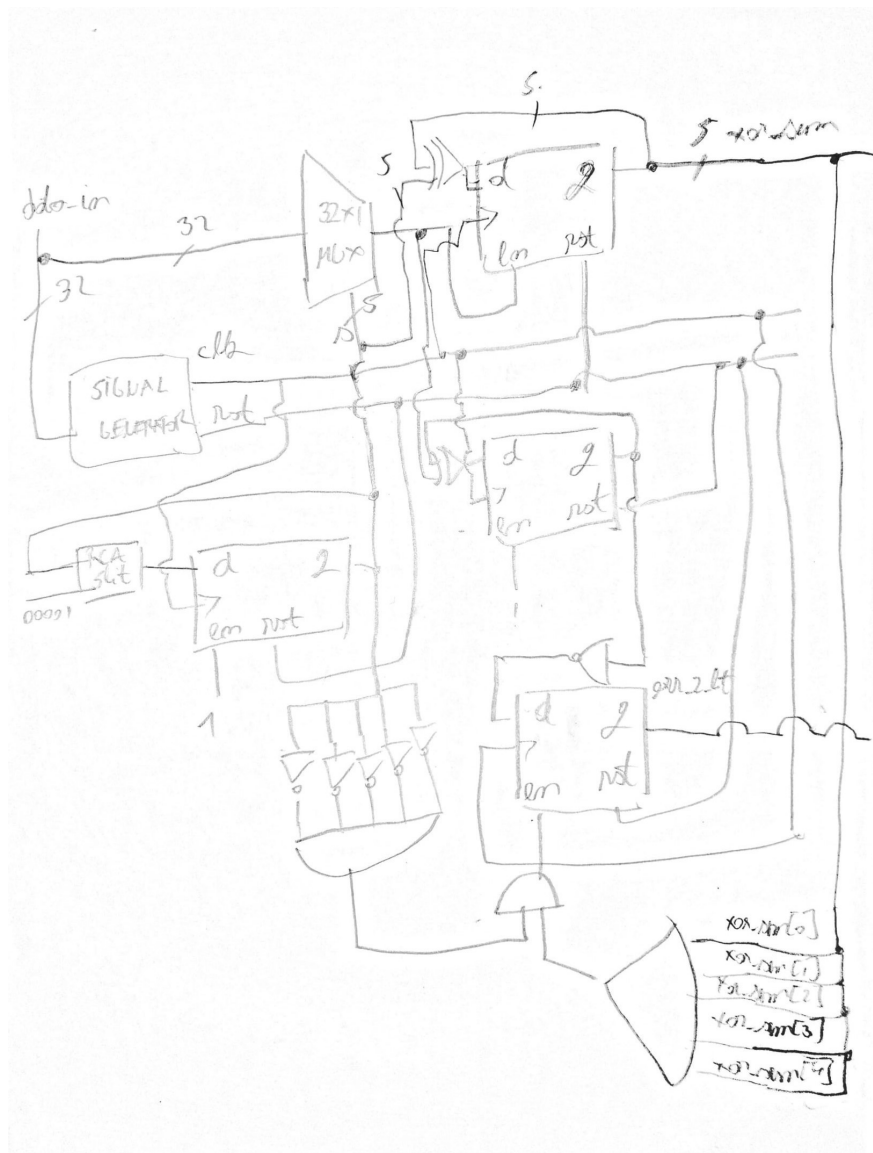 5
5 xor_sum
data_in
32
32x1
MUX
5
d q
en rst
32
5
clk
SIGNAL
GENERATOR
rst
d q
en rst
1
RCA
5bit
00001
d q
en rst
1
err_2_bit
d q
en rst
xor_sum[0]
xor_sum[1]
xor_sum[2]
xor_sum[3]
xor_sum[4]